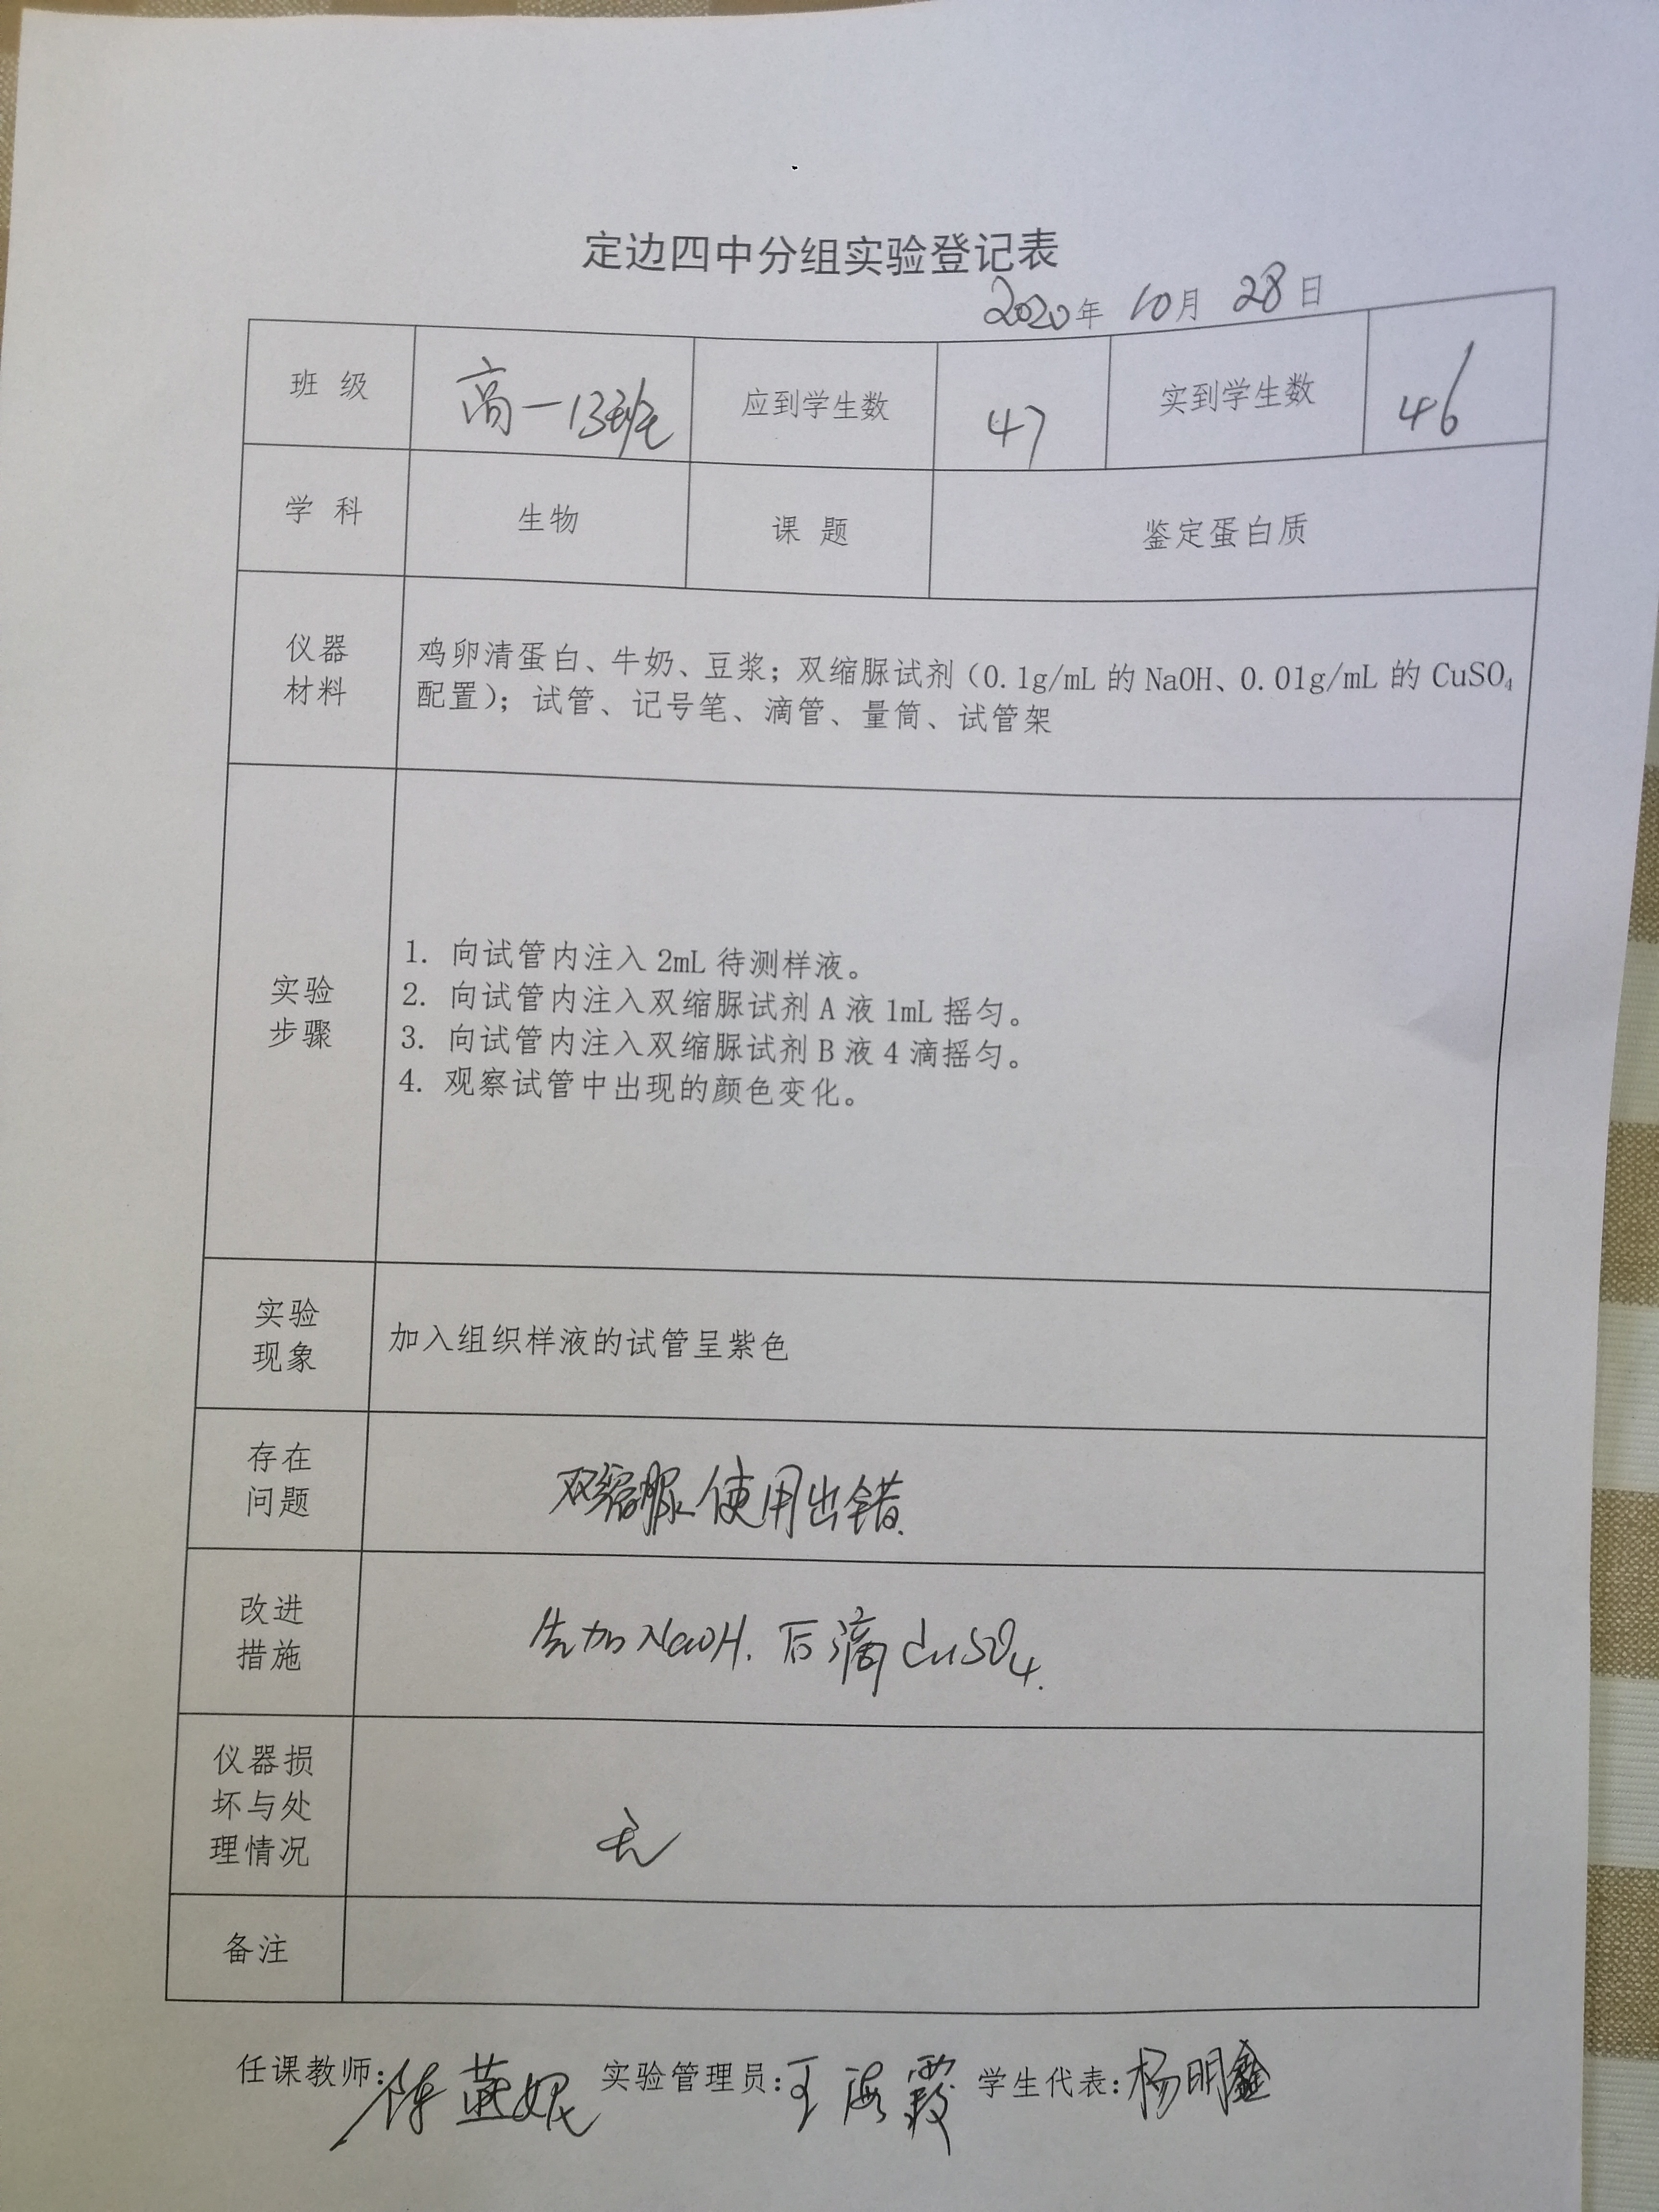 定边四中分组实验登记表
2020年 10月 28日
班 级 高一13班 应到学生数 47 实到学生数 46
学 科 生物 课 题 鉴定蛋白质
仪器
材料
鸡卵清蛋白、牛奶、豆浆；双缩脲试剂（0.1g/mL 的 NaOH、0.01g/mL 的 CuSO₄
配置）；试管、记号笔、滴管、量筒、试管架
实验
步骤
1. 向试管内注入 2mL 待测样液。
2. 向试管内注入双缩脲试剂 A 液 1mL 摇匀。
3. 向试管内注入双缩脲试剂 B 液 4 滴摇匀。
4. 观察试管中出现的颜色变化。
实验
现象
加入组织样液的试管呈紫色
存在
问题
双缩脲使用出错.
改进
措施
先加NaOH. 后滴CuSO₄.
仪器损
坏与处
理情况
无
备注
任课教师: 陈燕妮 实验管理员: 王海霞 学生代表: 杨明鑫